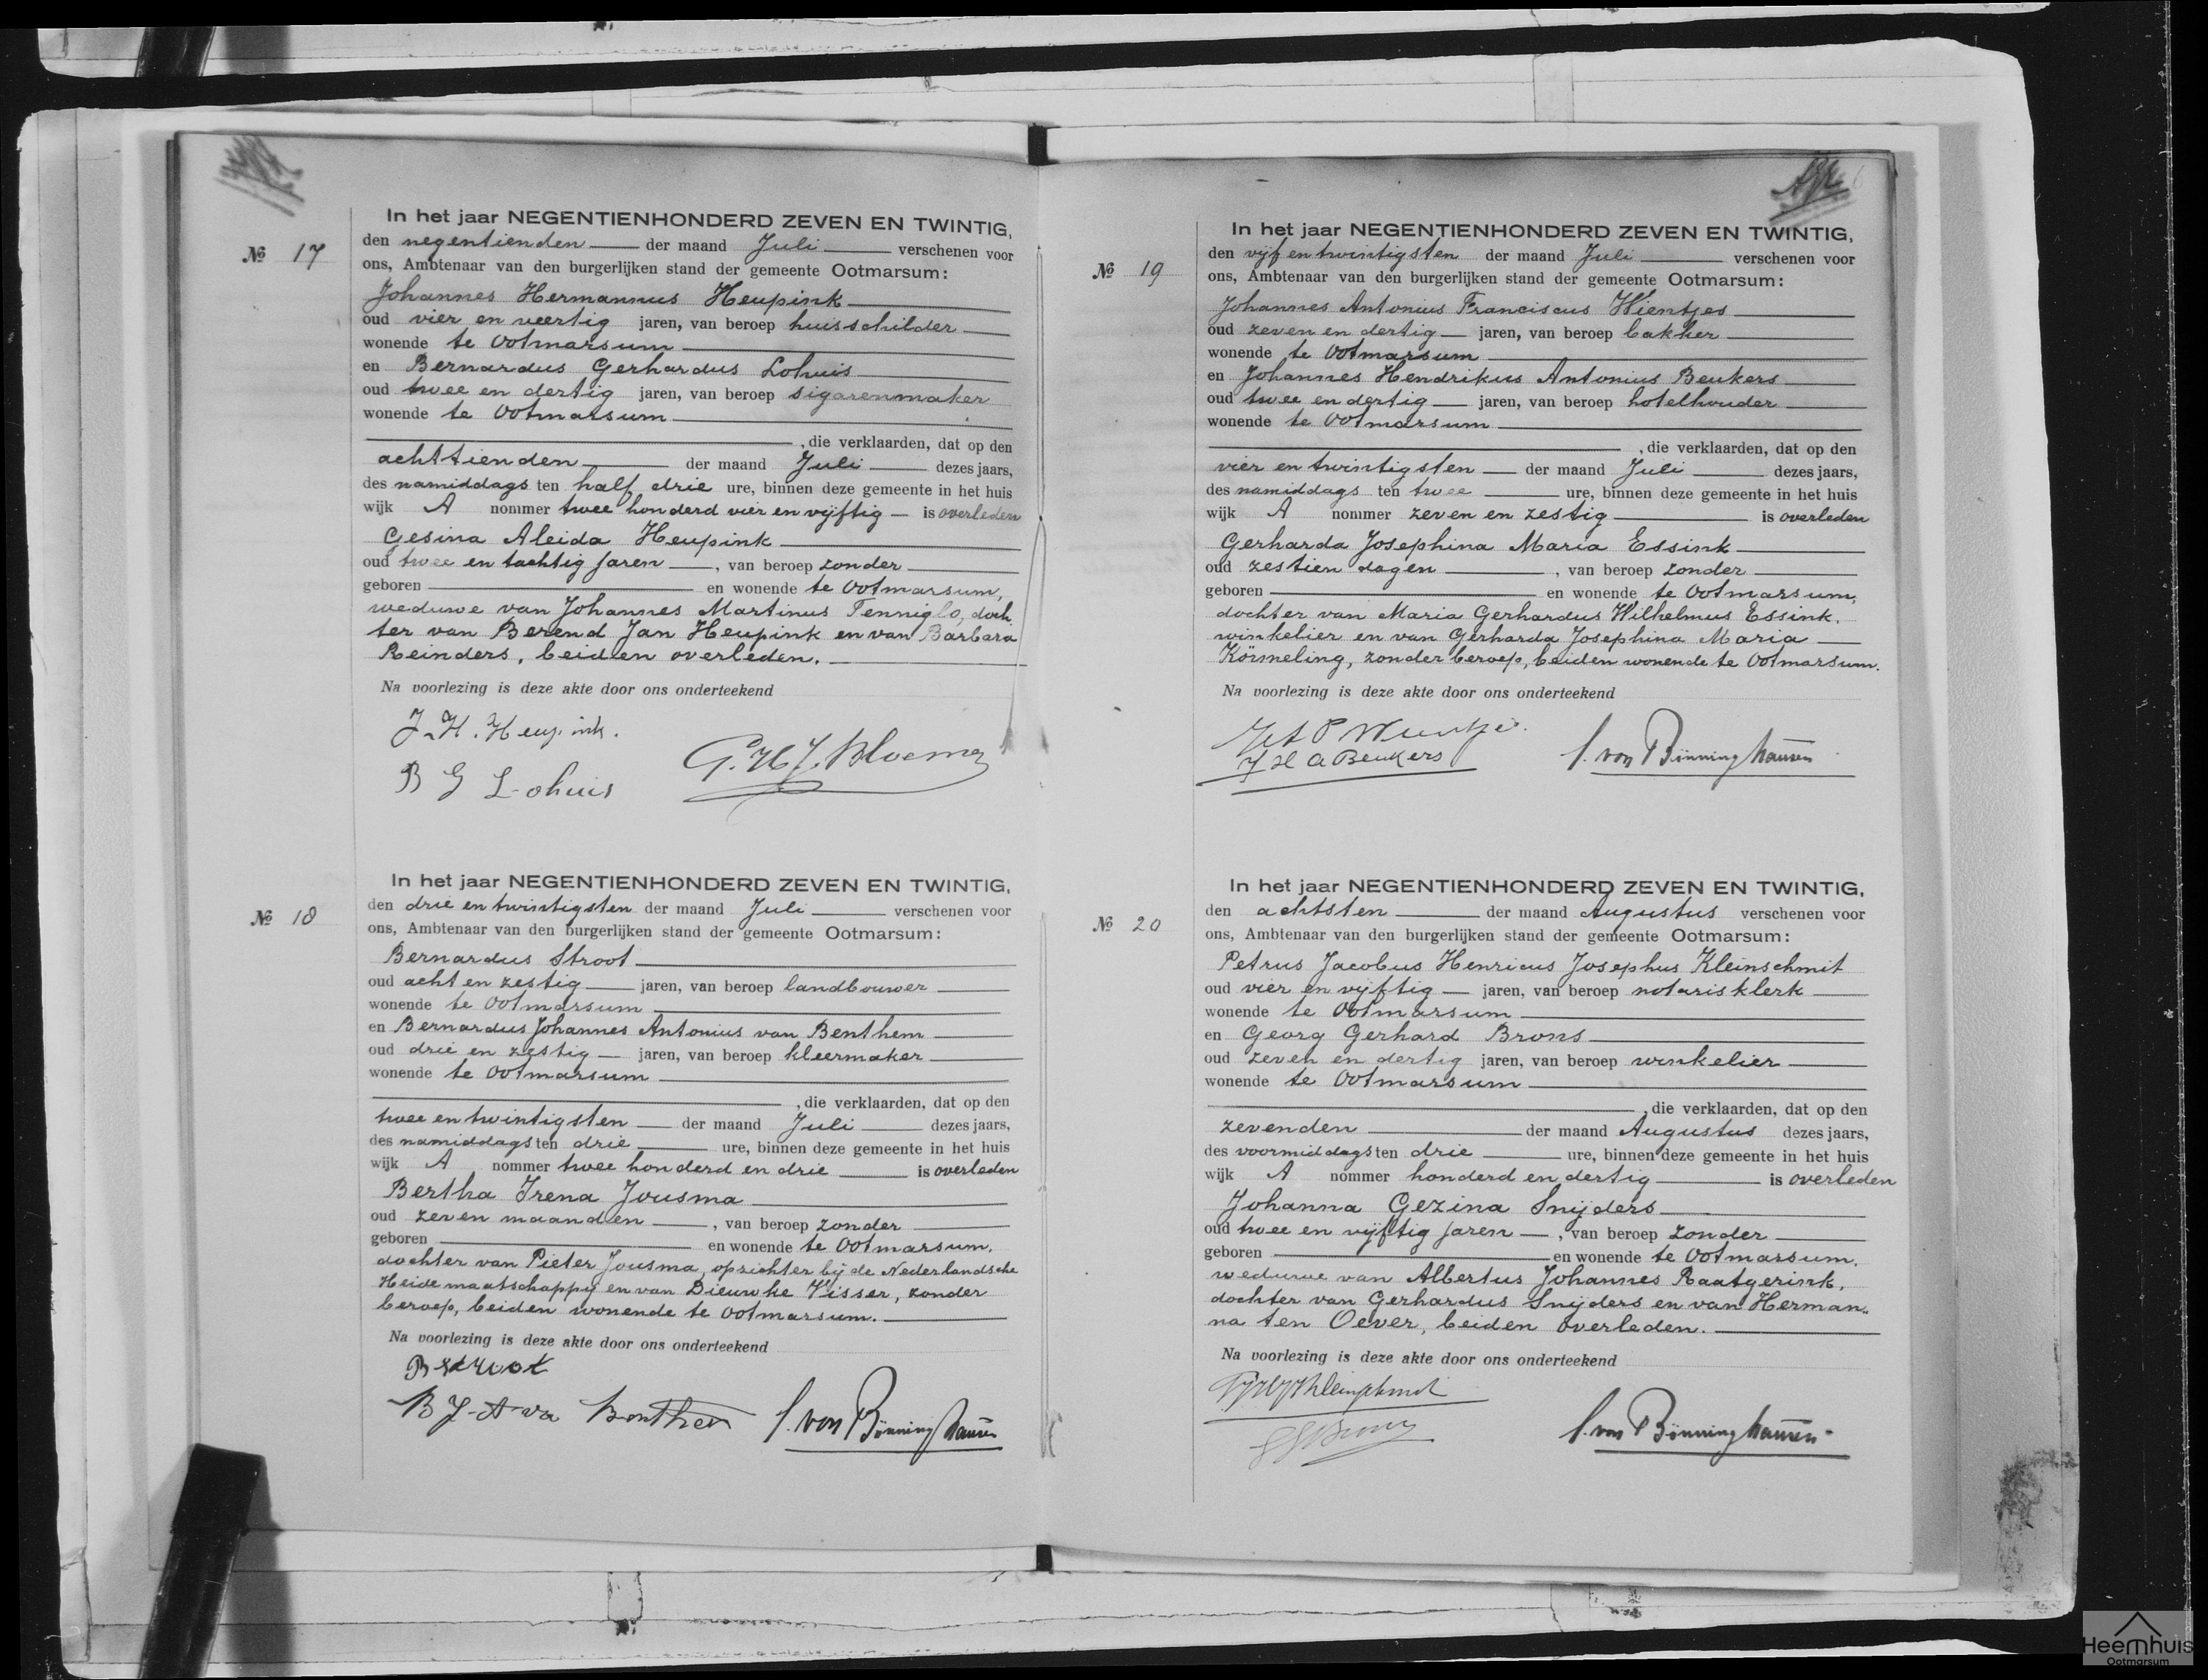 In het jaar NEGENTIENHONDERD ZEVEN EN TWINTIG,
№ 17
den negentienden der maand Juli verschenen voor
ons, Ambtenaar van den burgerlijken stand der gemeente Ootmarsum:
Johannes Hermannus Heupink
oud vier en veertig jaren, van beroep huisschilder
wonende te Ootmarsum
en Bernardus Gerhardus Lohuis
oud twee en dertig jaren, van beroep sigarenmaker
wonende te Ootmarsum
, die verklaarden, dat op den
achttienden der maand Juli dezes jaars,
des namiddags ten half drie ure, binnen deze gemeente in het huis
wijk A nommer twee honderd vier en vijftig is overleden
Gesina Aleida Heupink
oud twee en tachtig jaren, van beroep zonder
geboren en wonende te Ootmarsum,
weduwe van Johannes Martinus Tenniglo, doch
ter van Berend Jan Heupink en van Barbara
Reinders, beiden overleden.
Na voorlezing is deze akte door ons onderteekend
J. H. Heupink.
G. H. J. Bloemen
B G Lohuis
In het jaar NEGENTIENHONDERD ZEVEN EN TWINTIG,
№ 18
den drie en twintigsten der maand Juli verschenen voor
ons, Ambtenaar van den burgerlijken stand der gemeente Ootmarsum:
Bernardus Stroot
oud acht en zestig jaren, van beroep landbouwer
wonende te Ootmarsum
en Bernardus Johannes Antonius van Benthem
oud drie en zestig jaren, van beroep kleermaker
wonende te Ootmarsum
, die verklaarden, dat op den
twee en twintigsten der maand Juli dezes jaars,
des namiddags ten drie ure, binnen deze gemeente in het huis
wijk A nommer twee honderd en drie is overleden
Bertha Irena Jousma
oud zeven maanden, van beroep zonder
geboren en wonende te Ootmarsum,
dochter van Pieter Jousma, opzichter bij de Nederlandsche
Heidemaatschappij en van Dieuwke Visser, zonder
beroep, beiden wonende te Ootmarsum.
Na voorlezing is deze akte door ons onderteekend
B Stroot
B J A va Benthem
v. von Bönninghausen
In het jaar NEGENTIENHONDERD ZEVEN EN TWINTIG,
№ 19
den vijf en twintigsten der maand Juli verschenen voor
ons, Ambtenaar van den burgerlijken stand der gemeente Ootmarsum:
Johannes Antonius Franciscus Wientjes
oud zeven en dertig jaren, van beroep bakker
wonende te Ootmarsum
en Johannes Hendrikus Antonius Beukers
oud twee en dertig jaren, van beroep hotelhouder
wonende te Ootmarsum
, die verklaarden, dat op den
vier en twintigsten der maand Juli dezes jaars,
des namiddags ten twee ure, binnen deze gemeente in het huis
wijk A nommer zeven en zestig is overleden
Gerharda Josephina Maria Essink
oud zestien dagen, van beroep zonder
geboren en wonende te Ootmarsum,
dochter van Maria Gerhardus Wilhelmus Essink,
winkelier en van Gerharda Josephina Maria
Körmeling, zonder beroep, beiden wonende te Ootmarsum.
Na voorlezing is deze akte door ons onderteekend
J H A Beukers
von Bönninghausen
In het jaar NEGENTIENHONDERD ZEVEN EN TWINTIG,
№ 20
den achtsten der maand Augustus verschenen voor
ons, Ambtenaar van den burgerlijken stand der gemeente Ootmarsum:
Petrus Jacobus Henricus Josephus Kleinschmit
oud vier en vijftig jaren, van beroep notarisklerk
wonende te Ootmarsum
en Georg Gerhard Brons
oud zeven en dertig jaren, van beroep winkelier
wonende te Ootmarsum
, die verklaarden, dat op den
zevenden der maand Augustus dezes jaars,
des voormiddags ten drie ure, binnen deze gemeente in het huis
wijk A nommer honderd en dertig is overleden
Johanna Gezina Snijders
oud twee en vijftig jaren, van beroep zonder
geboren en wonende te Ootmarsum,
weduwe van Albertus Johannes Raatgerink,
dochter van Gerhardus Snijders en van Herman„
na ten Oever, beiden overleden.
Na voorlezing is deze akte door ons onderteekend
Kleinschmit
von Bönninghausen
Heemhuis
Ootmarsum